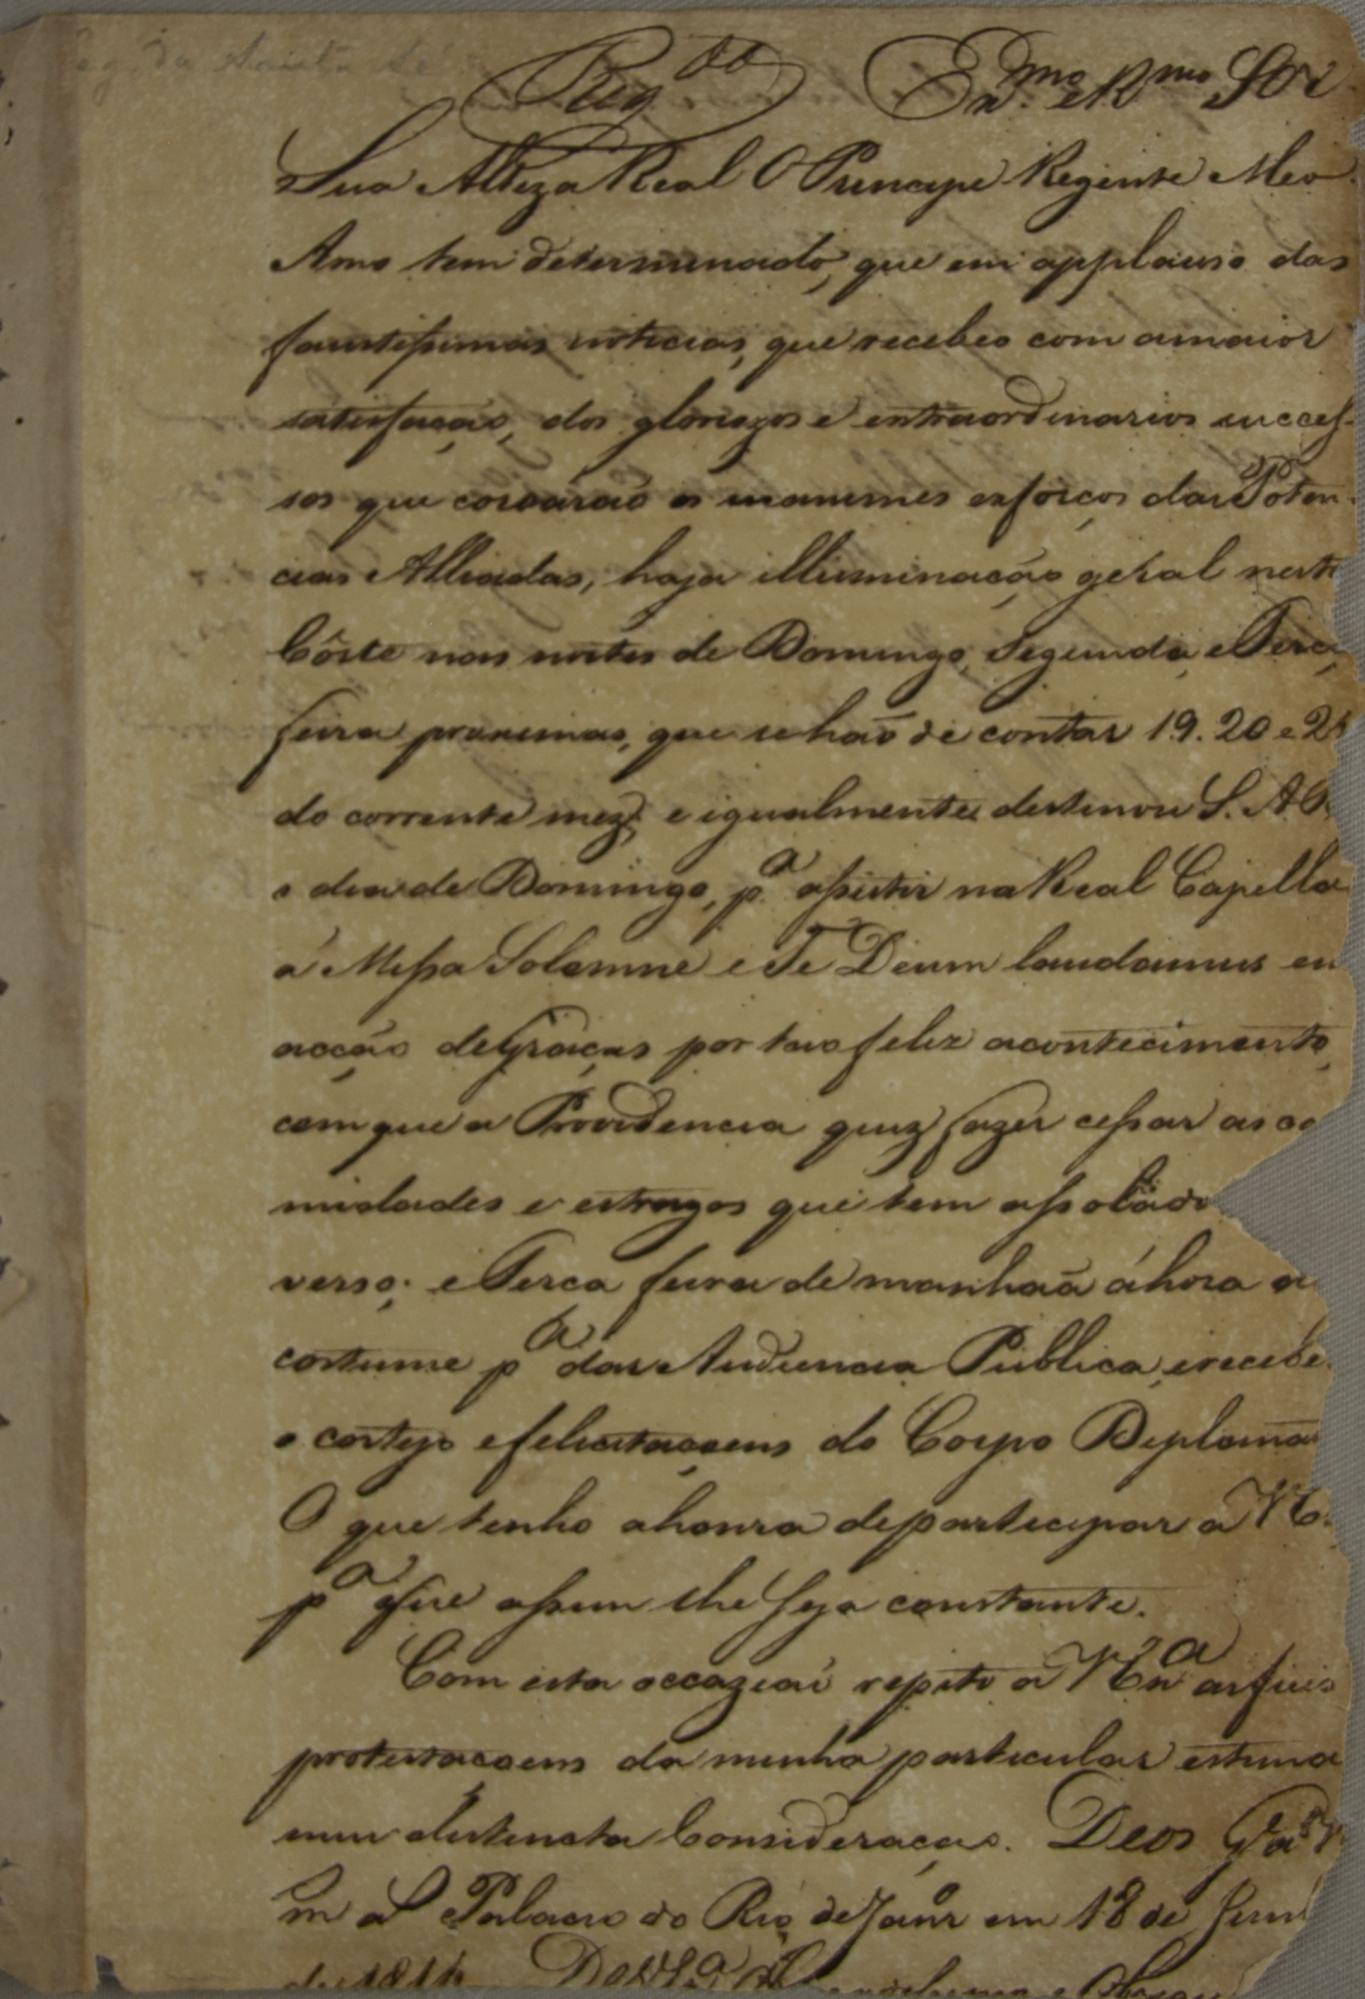 Reg.do Ex.mo e R.mo Snr
Sua Alteza Real O Principe Regente Meu
Amo tem determinado, que em applauso das
faustissimas noticias, que recebeo com a maior
satisfação, dos gloriozos e extraordinarios succes-
sos que coroárão os unanimes esforços das Poten-
cias Alliadas, haja illuminação geral nesta
Côrte nas noites de Domingo, Segunda, e Terça
feira proximas, que se hão de contar 19. 20 e 21
do corrente mez; e igualmente destinou S. A. R
o dia de Domingo, p.a assistir na Real Capella
á Missa Solemne e Te Deum laudamus em
acção de Graças por tão feliz acontecimento,
com que a Providencia quiz fazer cessar as ca
midades e estragos que tem assolado
verso; e Terca feira de manhaã á hora
costume p.a dar Audiencia Publica, e recebe
o cortejo e felicitaçoens do Corpo Diploma
O que tenho a honra de participar a V. E.
p.a que assim lhe seja constante.
Com esta occazião repito a V. Ex.a as fieis
protestaçoens da minha particular estima
mui distincta Consideração. Deos G.de a V
m a.s Palacio do Rio de Janr.o em 18 de Jun
de 1814